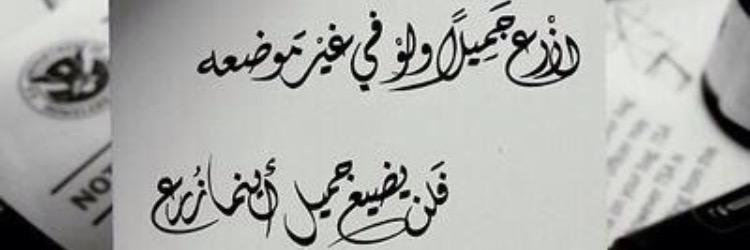 ازْرع جَمِيلًا ولوْ في غيْر مَوضعه
فَلن يضيع جميل أينما زُرع
NOT